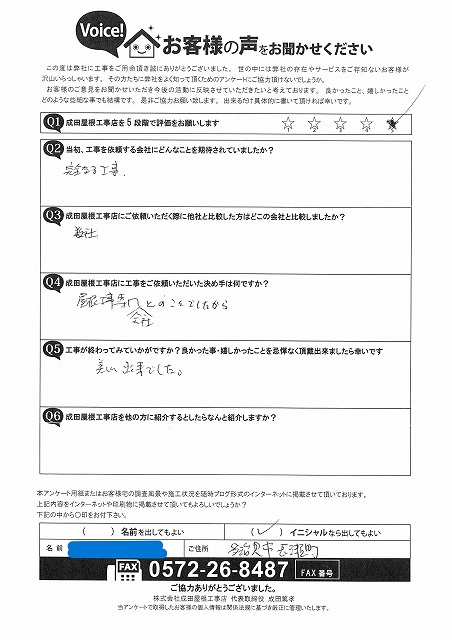 Voice!
お客様の声をお聞かせください
この度は弊社に工事をご用命頂き誠にありがとうございました。世の中には弊社の存在やサービスをご存知ないお客様が
沢山いらっしゃいます。その方たちに弊社をよく知って頂くためのアンケートにご協力頂けないでしょうか。
お客様のご意見をお聞かせいただき今後の活動に反映させていただきたいと考えております。良かったこと、嬉しかったこと
どのような些細な事でも結構です。是非ご協力お願い致します。出来るだけ具体的に書いて頂ければ幸いです。
Q1 成田屋根工事店を5段階で評価をお願いします ☆ ☆ ☆ ☆ ★
Q2 当初、工事を依頼する会社にどんなことを期待されていましたか?
完全なる工事.
Q3 成田屋根工事店にご依頼いただく際に他社と比較した方はどこの会社と比較しましたか?
社
Q4 成田屋根工事店に工事をご依頼いただいた決め手は何ですか?
屋根工事専門とのことでしたから
会社
Q5 工事が終わってみていかがですか?良かった事・嬉しかったことを忌憚なく頂戴出来ましたら幸いです
美しい出来でした。
Q6 成田屋根工事店を他の方に紹介するとしたらなんと紹介しますか?
本アンケート用紙またはお客様宅の調査風景や施工状況を随時ブログ形式のインターネットに掲載させて頂いております。
上記内容をインターネットや印刷物に掲載させて頂いてもよろしいでしょうか?
下記の中から〇印をお付下さい。
( ) 名前を出してもよい ( ✓ ) イニシャルなら出してもよい
名前 ご住所 多治見市
FAX 0572-26-8487 FAX 番号
ご協力ありがとうございました。
株式会社成田屋根工事店 代表取締役 成田篤孝
当アンケートで取得したお客様の個人情報は関係法規に基づき厳正に管理いたします。